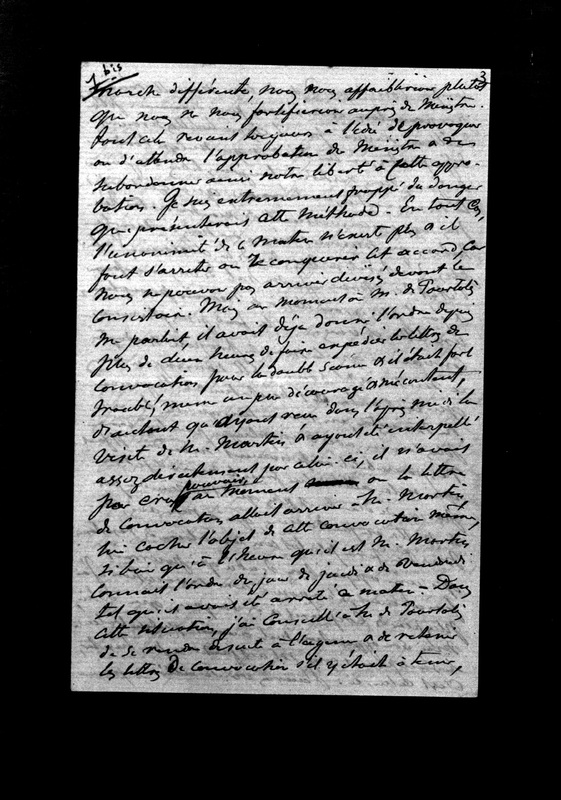 7 bis
3
marche différente, nous nous affaiblirions plutôt
que nous ne nous fortifierions auprès du Ministre.
Tout cela revient toujours à l'idée de provoquer
ou d'attendre l'approbation du Ministre & de
subordonner ainsi notre liberté à cette appro-
bation. Je suis extrêmement frappé du danger
que présenterait cette méthode. En tout cas,
l'unanimité de ce matin n'existe plus & il
faut s'arrêter ou reconquérir cet accord, car
nous ne pouvons pas arriver divisés devant le
Consistoire. Mais au moment où M. de Pourtalès
me parlait, il avait déjà donné l'ordre depuis
plus de deux heures de faire expédier les lettres de
convocation pour la double séance & il était fort
troublé, même un peu découragé & mécontent,
d'autant qu'ayant reçu dans l'après midi la
visite de M. Martin & ayant été interpellé
assez directement par celui-ci, il n'avait
pas cru pouvoir au moment où la lettre
de convocation allait arriver à M. Martin,
lui cacher l'objet de cette convocation même,
si bien qu'à l'heure qu'il est M. Martin
connaît l'ordre du jour de jeudi & de vendredi
tel qu'il avait été arrêté ce matin - Dans
cette situation, j'ai conseillé à M. de Pourtalès
de se rendre de suite à l'agence & de retenir
les lettres de convocation s'il y était à temps,